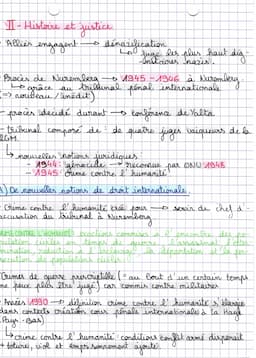 II - Histoire et justice
- Alliés engagent → dénazification
↳ juge les plus haut dig-
nitaires nazis.
- Procès de Nuremberg → 1945 - 1946 à Nuremberg
↳ grâce au tribunal pénal internationale
(⇒ nouveau / inédit)
- procès décidé durant → conférence de Yalta
- tribunal composé de : de quatre juges vaiqueurs de la
2GM.
↳ nouvelles notions juridiques :
- 1944 : génocide → reconnue par ONU 1948
- 1945 : crime contre l'humanité
A) De nouvelles notions de droit internationale.
- Crime contre l'humanité créé pour → servir de chef d'-
accusation du tribunal à Nuremberg
crime contre l'humanité : exactions commises à l'encontre des po-
pulations civiles en temps de guerre. L'assassinat l'exter-
mination, réduction en esclavage, la déportation et la per-
sécution de populations civiles
Crimes de guerre prescriptible (= au bout d'un certain temps
ne peux plus être jugé) car commis contre militaires
- Années 1990 → définition crime contre l'humanité s'élargie
dans contexte création cour pénale internationale à la Haye
(Pays-Bas)
↳ crime contre l'humanité : conditions conflit armé disparait
+ torture, viol et emprisonnement ajouté.